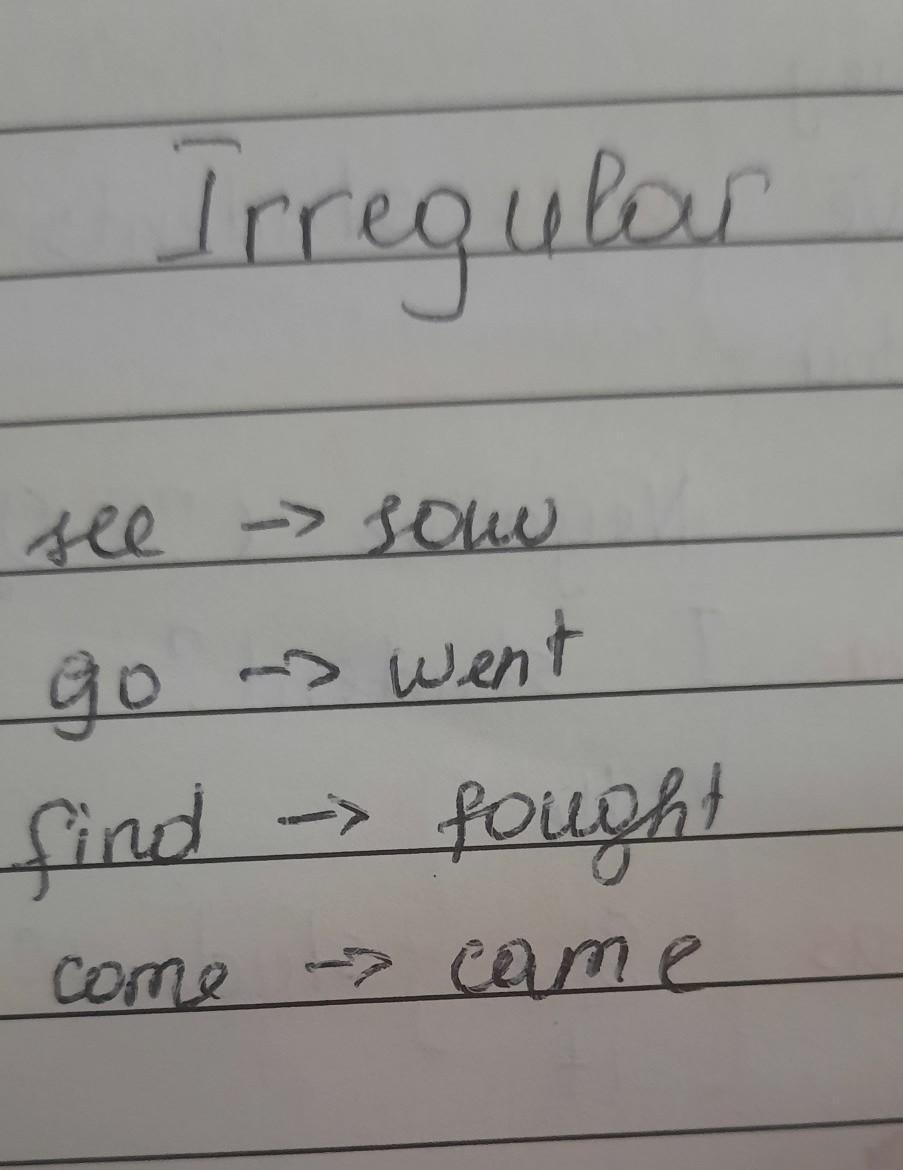 Irregular
see -> saw
go -> went
find -> fought
come -> came